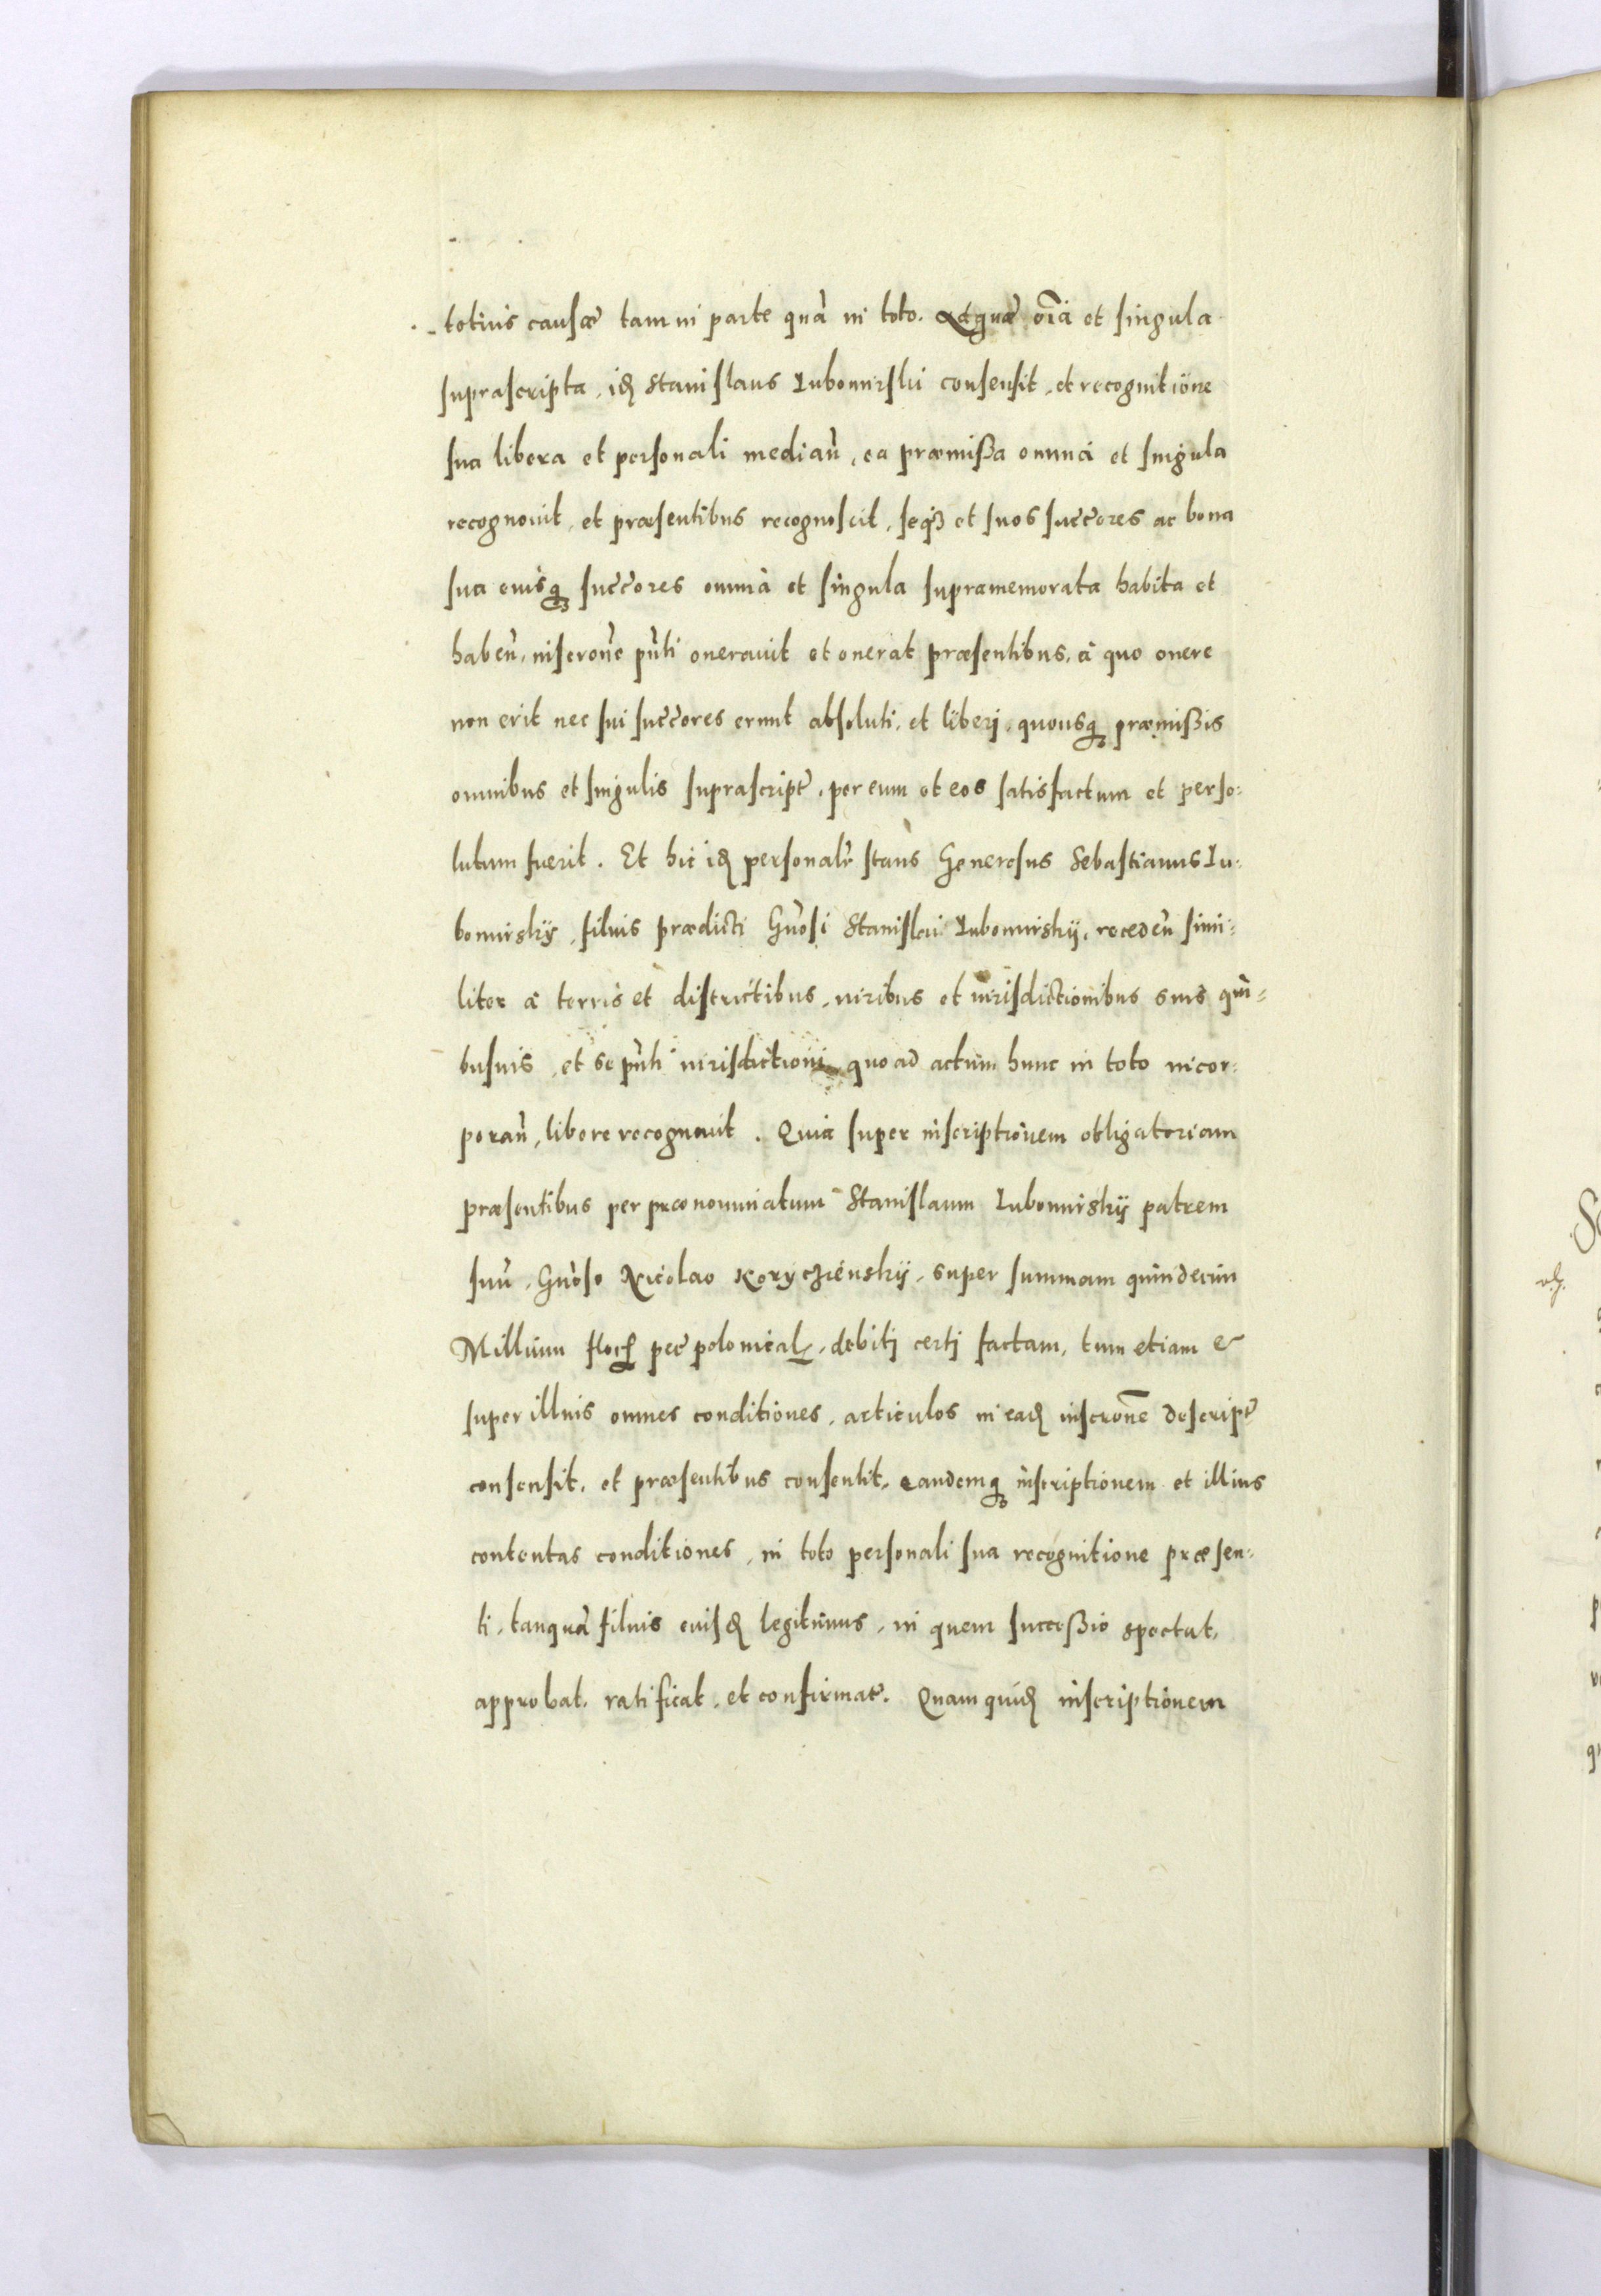 totius causæ tam in parte quā in toto. Ad quæ oīa et singula
suprascripta, idē Stanislaus Lubomirski consensit, et recognitione
sua libera et personali median̄, ea præmißa omnia et singula
recognouit, et præsentibus recognoscit, seqʒ et suos succ̄ores ac bona
sua eiusqʒ succ̄ores omnia et singula supramemorata habita et
haben̄, inscron̄e pn̄ti onerauit et onerat præsentibus, à quo onere
non erit nec sui succ̄ores erunt absoluti, et liberi, quousqʒ præmißis
omnibus et singulis suprascript̄, per eum et eos satisfactum et perso=
lutum fuerit. Et hic idē personalr̄ stans Generosus Sebastianus Lu=
bomirskÿ, filius prædicti Gn̄osi Stanislai Lubomirskÿ, receden̄ simi=
liter à terris et districtibus, iuribus et iurisdictionibus suis qui=
busuis, et se pn̄ti iurisdictioni quo ad actum hunc in toto incor=
poran̄, libere recognouit. Quia super inscriptionem obligatoriam
præsentibus per prænominatum Stanislaum Lubomirskÿ patrem
suū, Gn̄oso Nicolao Korycżienskÿ, super summam quindecim
Millium flor̄ pec̄ polonical̄, debiti certi factam, tum etiam &
super illius omnes conditiones, articulos in eadē inscron̄e descript̄
consensit, et præsentibus consentit, eandemqʒ inscriptionem et illius
contentas conditiones, in toto personali sua recognitione præsen=
ti, tanquā filius eiusdē legitimus, in quem succeßio spectat,
approbat, ratificat, et confirmat. Quam quidē inscriptionem